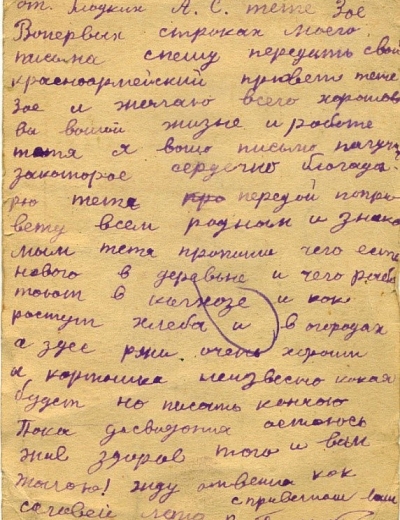 от. Моцкин А. С. тете Зое
Вопервых строках моего
письма спешу передать свой
красноармейский привет тете
Зое и желаю всего хорошово
ва вашой жизне и работе
тетя я вашо письмо палучи
закоторое сердечно благада-
рю тета про передой попри
вету всем родным и знако
мым тета пропиши чего есть
нового в деревне и чего рабо
тоют в калхозе и как
ростут хлеба и в огородах
а здес ржи очень хороши
и картошка неизвесно кокая
будет но писать кончаю
Пока досвидония остоюсь
жив здоров того и вам
жолаю! жду ответа как
с приветом ваш
соловей лето